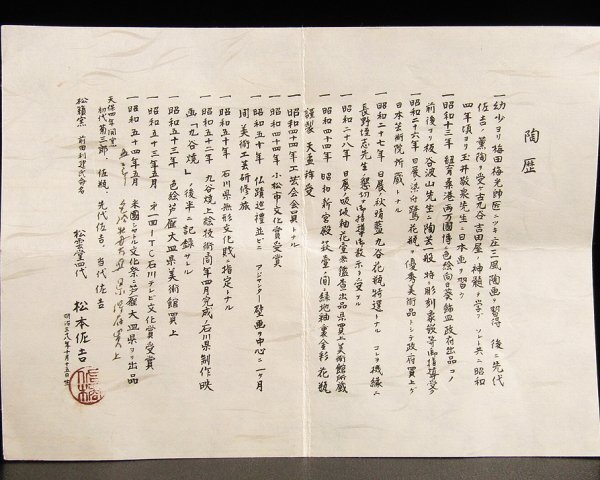 陶歴
一幼少ヨリ梅田梅光師匠ニツキ庄三風陶画ヲ習得 後ニ先代
佐吉ノ薫陶ヲ受ケ古九谷吉田屋ノ神髄ヲ学ブ ソレト共ニ昭和
四年頃ヨリ玉井敬泉先生ニ日本画ヲ習フ
一昭和十三年 紐育桑港両万国博ニ色絵向日葵飾皿政府出品 コノ
前後ヨリ板谷波山先生ニ陶芸一般 特ニ彫刻象嵌等御指導受ク
一昭和二十六年 日展ニ 花瓶ヲ優秀美術品トシテ政府買上ゲ
日本芸術院所蔵トナル
一昭和二十七年 日展ニ秋晴藍九谷花瓶特選トナル コレヲ機縁ニ
先生ニ懇切ナ御指導御教示ヲ受クル
一昭和二十八年 日展ニ吸坂釉花 無鑑査出品 県買上美術館所蔵
一昭和四十四年 昭和新宮殿 萩ノ間ニ緑地釉裏金彩花瓶
謹製 天盃拝受
一昭和四十四年 工芸会会員トナル
一昭和四十四年 小松市文化賞受賞
一昭和五十年 仏蹟巡礼並ビニ アジャンター壁画ヲ中心ニ一ヶ月
間ノ美術工芸研修ノ旅
一昭和五十年 石川県無形文化財ニ指定トナル
一昭和五十二年 九谷焼上絵技術同年四月完成ノ石川県制作映
画「九谷焼」ノ後半ニ記録サレル
一昭和五十三年 色絵芦雁大皿県美術館買上
一昭和五十三年五月 第一回ITC石川テレビ文化賞受賞
一昭和五十四年五月 米国シヤトル文化祭ニ芦雁大皿県ヨリ出品
天保四年開窯
初代菊三郎、佐瓶、先代佐吉、当代佐吉
松籟窯 前田利建氏命名
松雲堂四代 松本佐吉
明治三八年十月十五日生